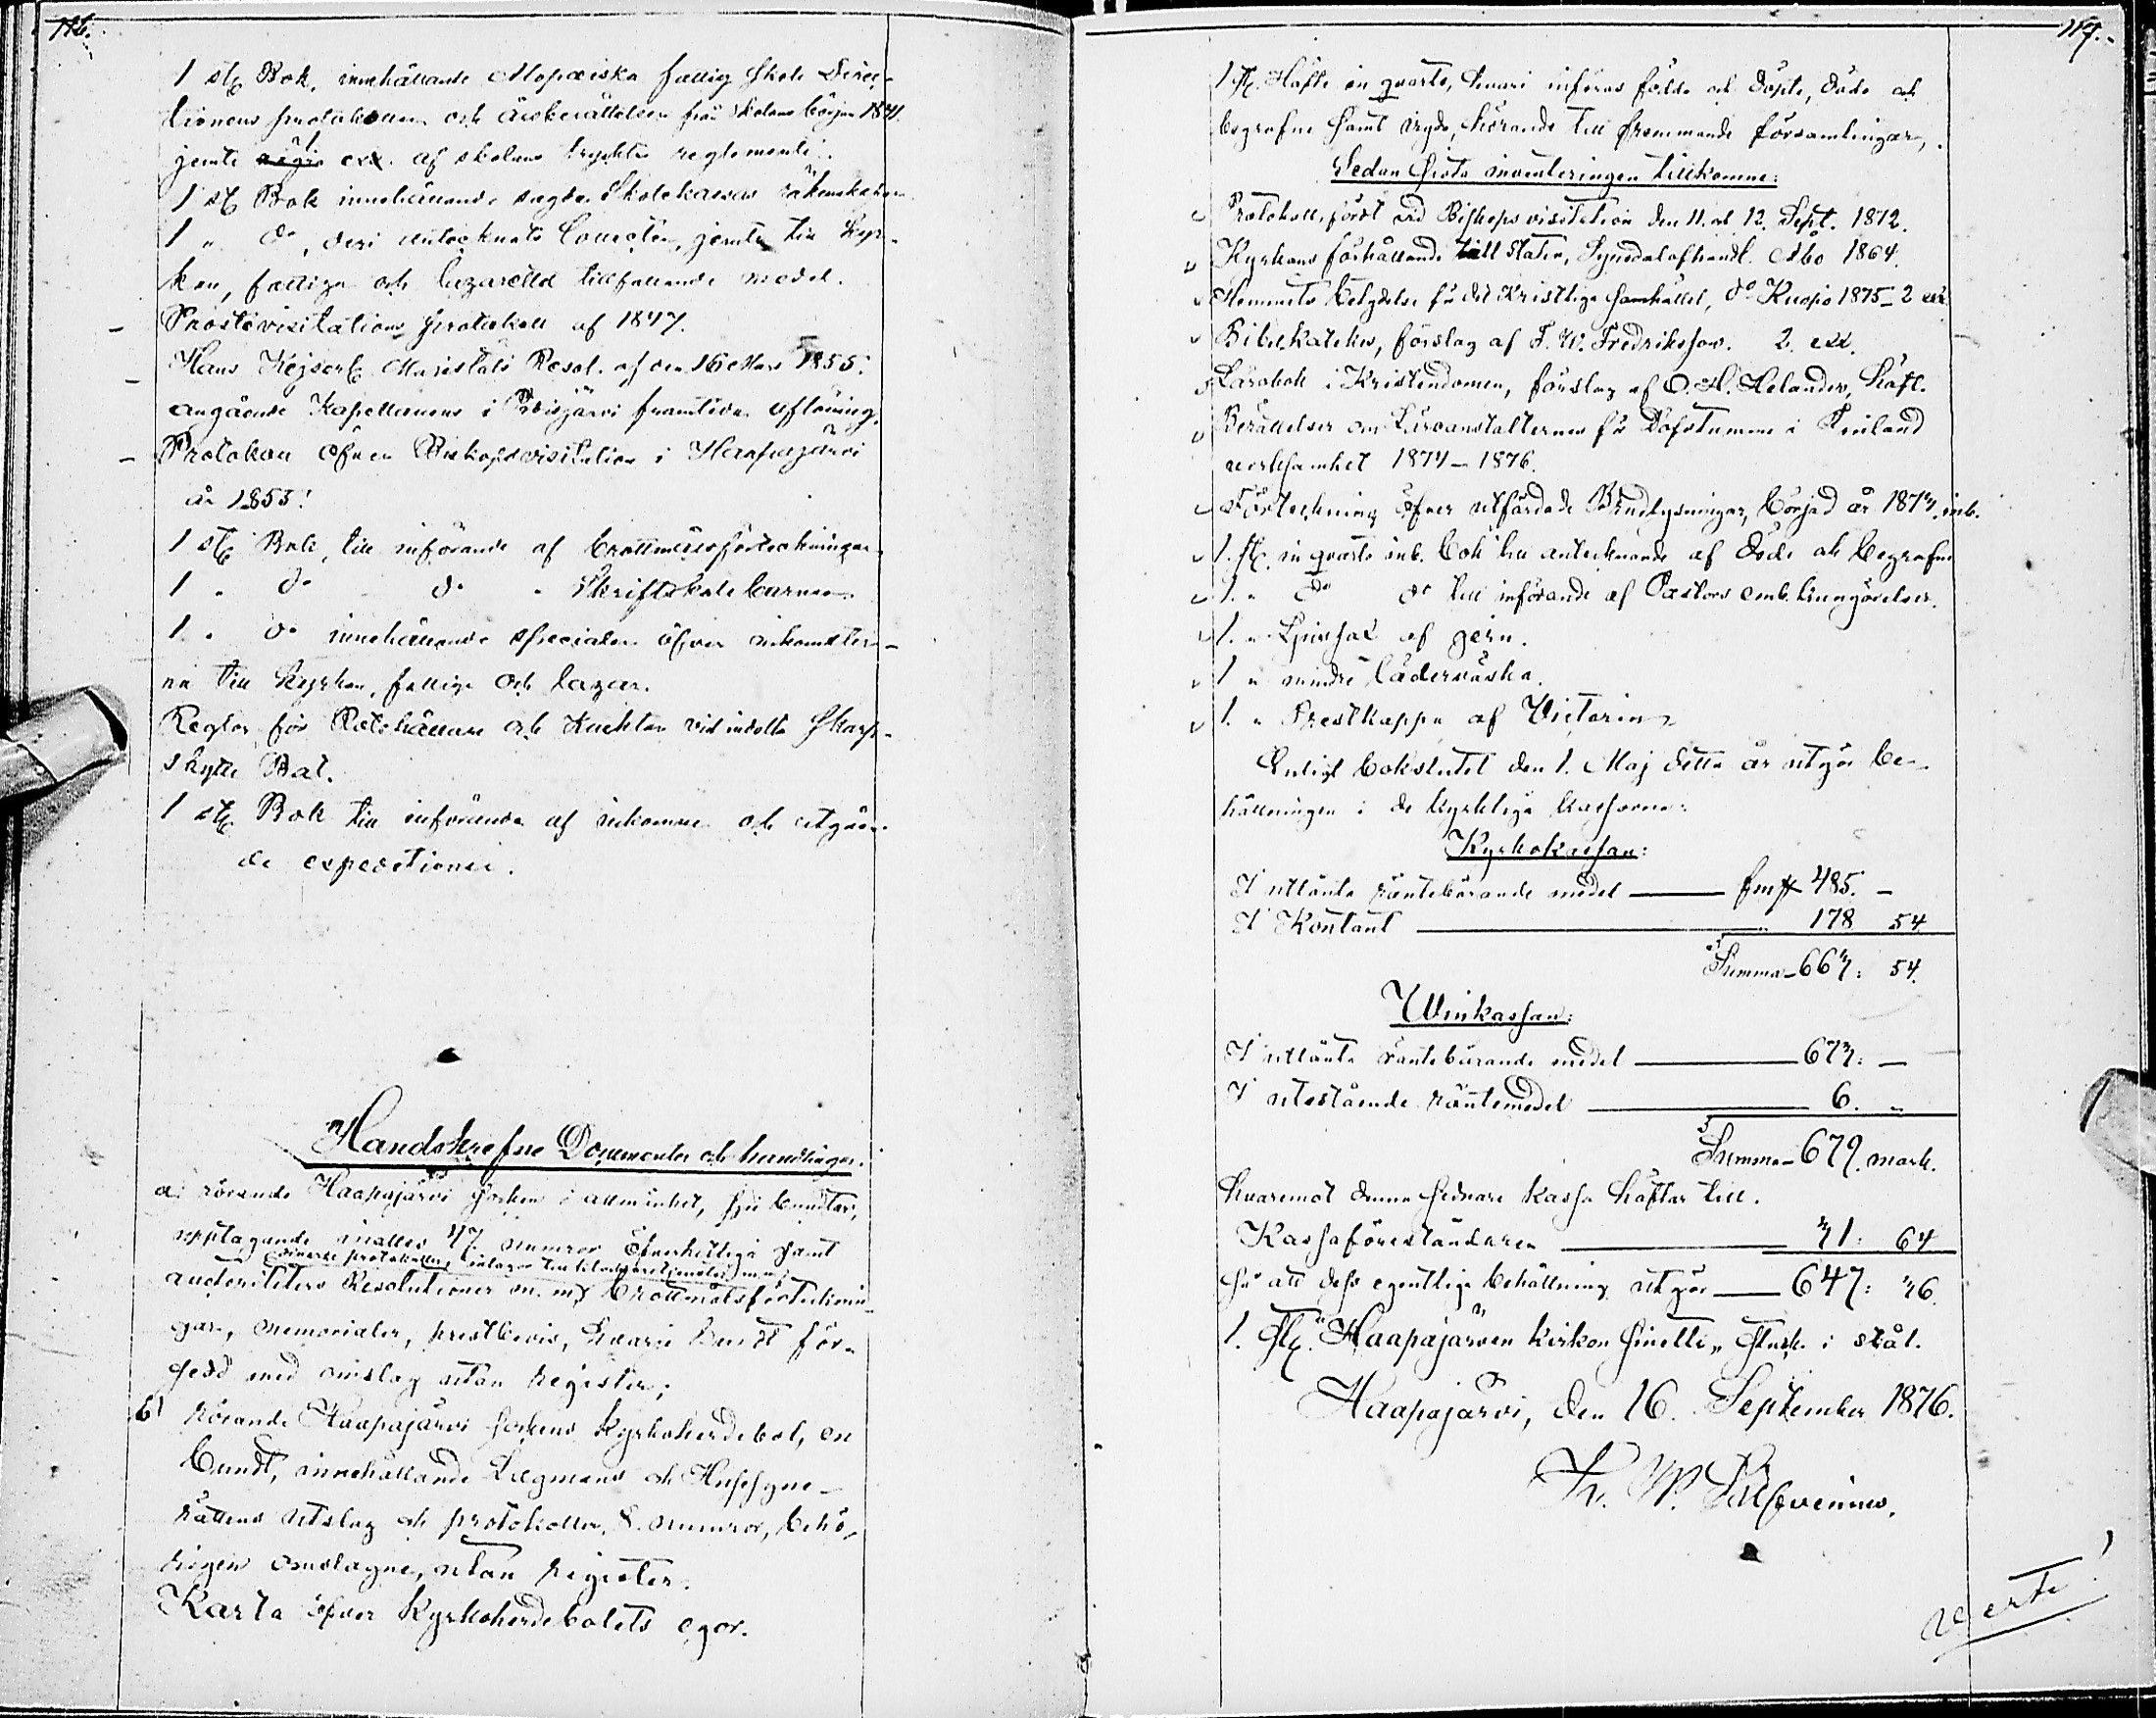 116.
1 st. Bok, innehållande Mopaiska fattig Skole Direc-
tionens protokoller och årsberättelser från skolans början 1841.
jemte några exx. af skolans tryckta reglemente.
1 st. Bok innehållande sagde Skolekassas räkenskaper
1 " do, deri antecknats Courcter, jemte till Kyr-
kan, fattiga och lazaretta tillfallande medel.
Prostevisitations protokoll af 1847.
Hans Kejserl. Majestäts Resol. af den 16 Mars 1855.
angående Kapellanens i Reisjärvi framtida aflöning.
Protokoll öfver Biskopsvisitation i Haapajärvi
år 1853!
1 st. Bok, till införande af brottmålsförteckningar.
1 " do do " Skriftskolebarnen.
1 " do innehållande specialer öfver inkomster-
na till Kyrkan, fattiga och lazar.
Reglor för Rotehållare och Knektar vid indelta Skarp-
skytte Bat.
1 st. Bok till införande af inkomne och utgåen-
de expeditioner.
Handskrefne Documenter och handlingar.
a) rörande Haapajärvi socken i allmänhet, sju bundtar,
upptagande inalles 47 numror Öfverhetliga samt
diverse protokoller, inlagor till tilwäxaretjenster m.m.;
auctoriteters Resolutioner m. m; brottmålsförtecknin-
gar, memorialer, prestbevis, hvarje bundt för-
sedd med omslag utan register;
b) rörande Haapajärvi sockens Kyrkoherdebol, en
bundt, innehållande Lagmans och Husesyne-
rättens utslag och protokoller, 8. numror, behö-
rigen omslagne, utan register.
Karta öfver Kyrkoherdebolets egor.
117.
1 st. Häfte in quarto, hvari införas födde och döpte, döde och
begrafne samt vigde, hörande till främmande församlingar,
Sedan sista inventeringen tillkomne:
Protokoll, fördt vid Biskops visitation den 11. och 12. Sept. 1872.
Kyrkans förhållande till staten, Synodalafhandl. Åbo 1864.
Hemmets betydelse för det Kristliga Samhället, do Kuopio 1875 - 2 exx.
Bibelkatekes, förslag af F. W. Fredriksson. 2. exx.
Lärobok i Kristendomen, förslag af O. H. Helander, häft.
Berättelser om Läroanstalternes för Döfstumme i Finland
verksamhet 1874 - 1876.
Förteckning öfver utfärdade Brudlysningar, började år 1873. inb.
1. st. in quarto inb. bok till antecknande af döde och begrafne
1. " do do till införande af Pastors emb. kungörelser.
1. " Ljussax af jern.
1 " mindre läderväska.
1. " Prestkappa af Victorin
Enligt bokslutet den 1. Maj detta år utgör be-
hållningen i de kyrkliga kassorna:
Kyrkokassan:
I utlånta räntebärande medel — fmk 485. -
I Kontant — 178 54
Summa - 663: 54.
Winkassan:
I utlånta räntebärande medel — 673: -
I utestående räntemedel — 6. "
Summa - 679. mark.
hvaremot denna sednare kassa häftar till.
Kassaföreståndaren — 31: 64
så att dess egentliga behållning utgör — 647: 36
1. st. "Haapajärven kirkon sinetti" stuck. i stål.
Haapajärvi, den 16. September 1876.
verte!